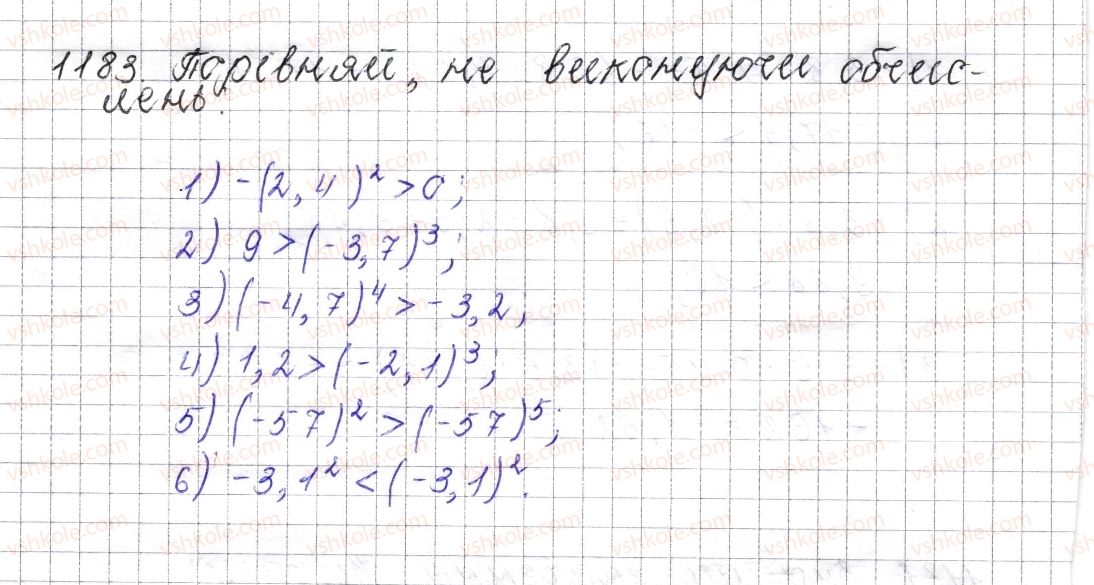 1183. Порівняй, не виконуючи обчис-
лень:
1) -(2,4)² > 0;
2) 9 > (-3,7)³;
3) (-4,7)⁴ > -3,2;
4) 1,2 > (-2,1)³;
5) (-57)² > (-57)⁵;
6) -3,1² < (-3,1)².